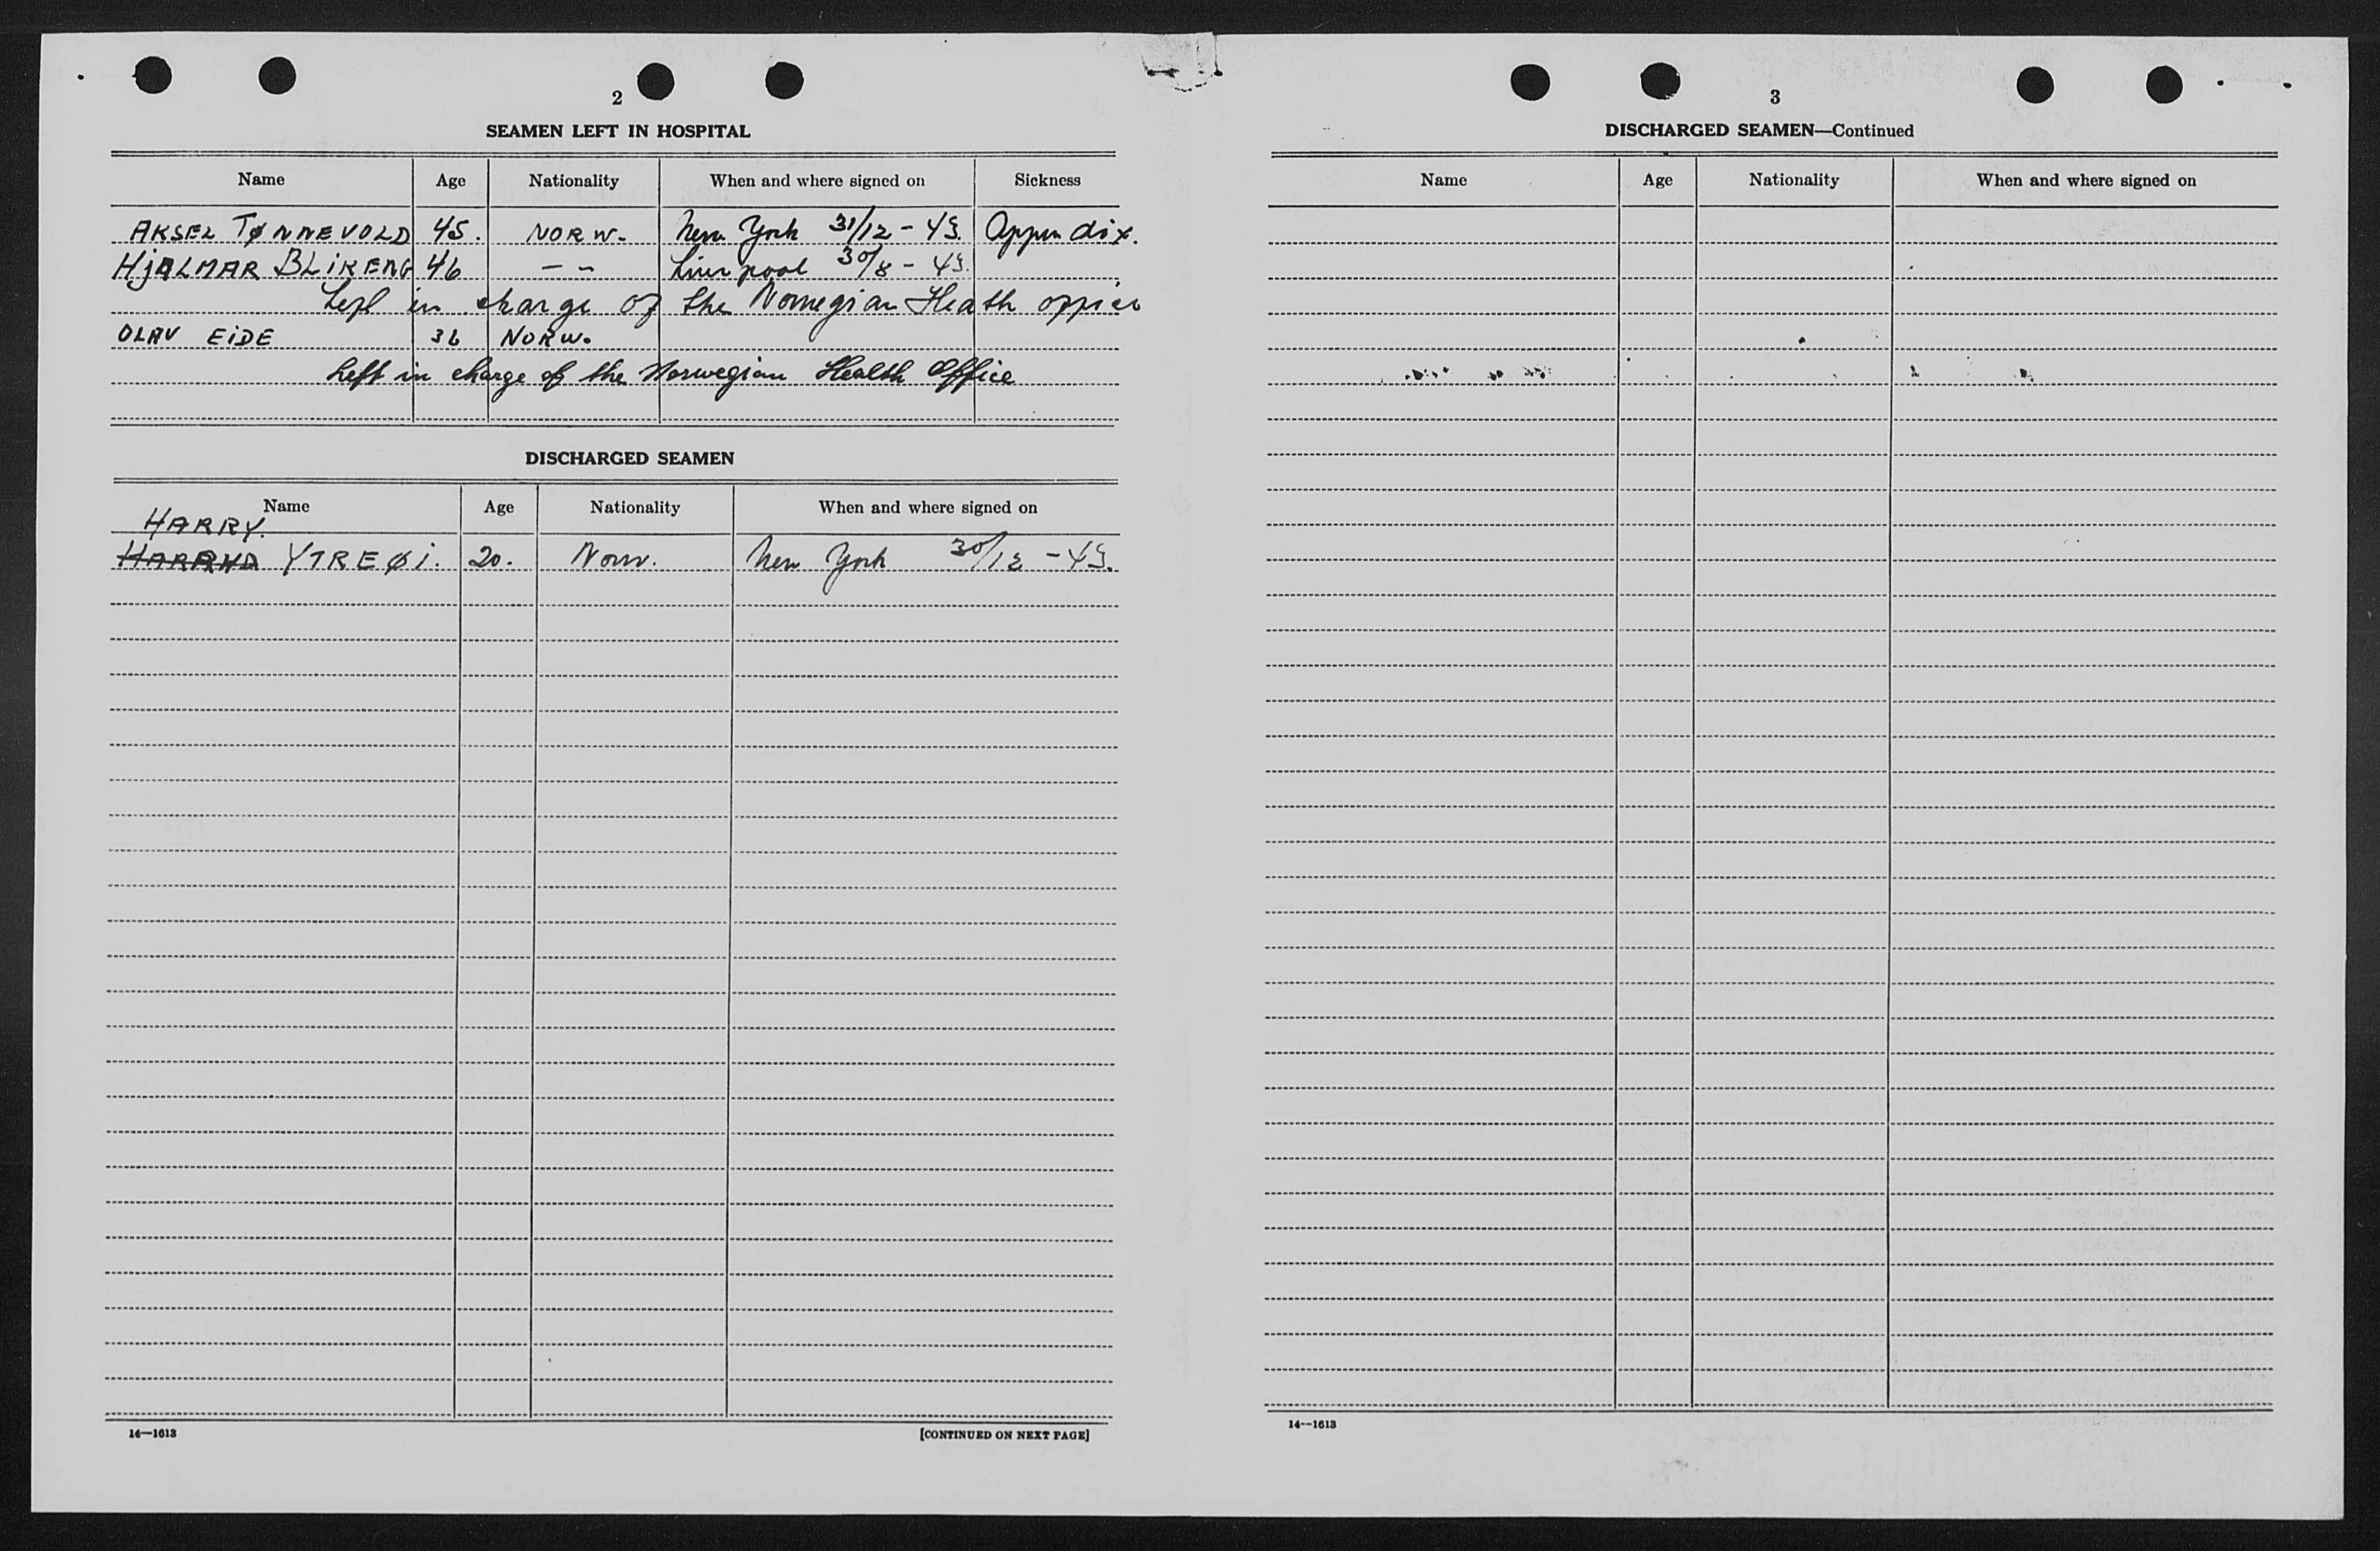 2
SEAMEN LEFT IN HOSPITAL
Name Age Nationality When and where signed on Sickness
AKSEL TØNNEVOLD 45. NORW. New York 31/12 - 43. Appendix.
HjALMAR BLiKENG 46 - - Liverpool 30/8 - 43.
Left in charge of the Norwegian Heath office
OLAV EiDE 36 NORW.
Left in charge of the Norwegian Health Office
DISCHARGED SEAMEN
Name Age Nationality When and where signed on
HARRY.
YTREØi. 20. Norw. New York 30/12 - 43.
14—1613 [CONTINUED ON NEXT PAGE]
3
DISCHARGED SEAMEN—Continued
Name Age Nationality When and where signed on
14—1613